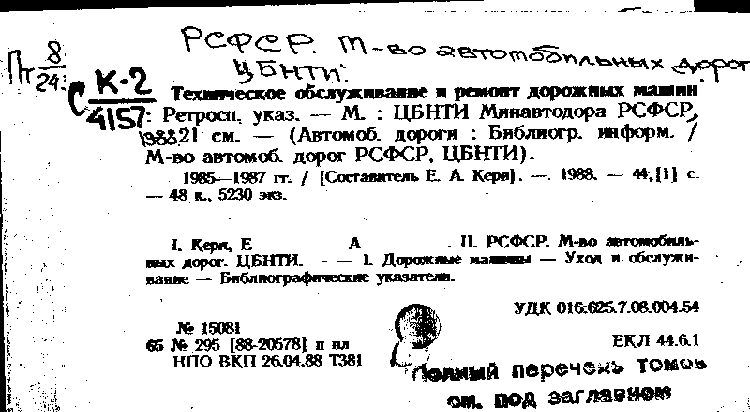 РСФСР. М-во автомобильных дорог
ЦБНТИ.
Пт 8/24:
С К-2/4157
Техническое обслуживание и ремонт дорожных машин
: Ретросп. указ. — М. : ЦБНТИ Минавтодора РСФСР,
1988. 21 см. — (Автомоб. дороги : Библиогр. информ. /
М-во автомоб. дорог РСФСР, ЦБНТИ).
1985—1987 гг. / [Составитель Е. А. Керн]. —. 1988. — 44,[1] с.
— 48 к., 5230 экз.
I. Керн, Е А . II. РСФСР. М-во автомобиль-
ных дорог. ЦБНТИ. - — 1. Дорожные машины — Уход и обслужи-
вание — Библиографические указатели.
УДК 016:625.7.08.004.54
№ 15081
65 № 295 [88-20578] п пл
ЕКЛ 44.6.1
НПО ВКП 26.04.88 Т381
Полный перечень томов
см. под заглавием